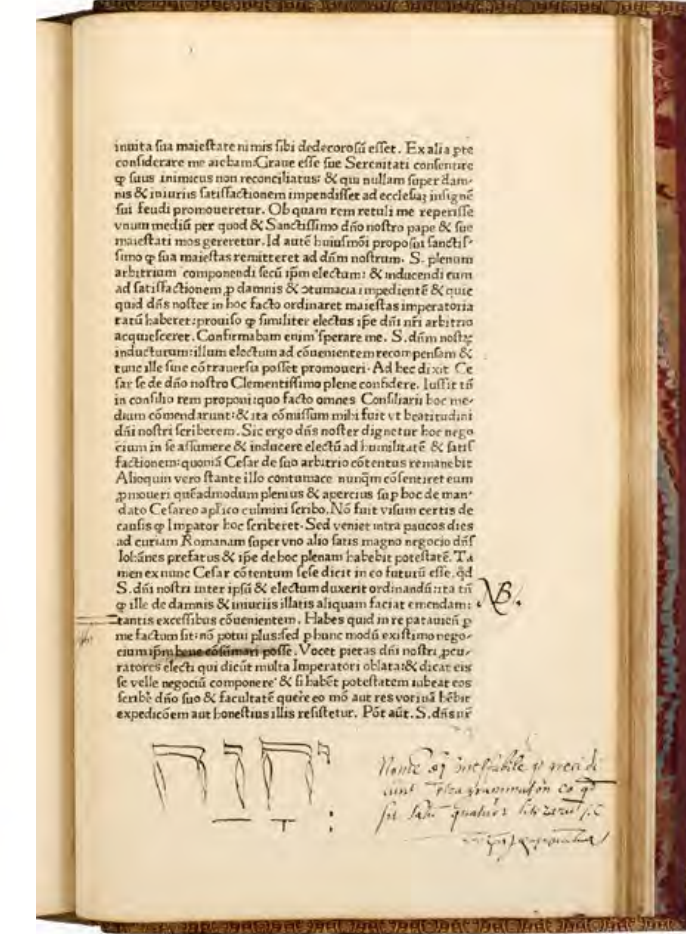 inuita sua maiestate nimis sibi dedecorosū esset. Ex alia pte
considerare me aiebam: Graue esse sue Serenitati consentire
ꝙ suus inimicus non reconciliatus: & qui nullam super dam-
nis & iniuriis satisfactionem impendisset ad ecclesiaꝫ insignē
sui feudi promoueretur. Ob quam rem retuli me reperisse
vnum mediū per quod & Sanctissimo dño nostro pape & sue
maiestati mos gereretur. Id autē huiusmōi proposui sanctis-
simo ꝙ sua maiestas remitteret ad dñm nostrum. S. plenum
arbitrium componendi secū ip̄m electum: & inducendi eum
ad satisfactionem ꝓ damnis & ↄtumacia: impediente & quic
quid dñs noster in hoc facto ordinaret maiestas imperatoria
ratū haberet: prouiso ꝙ similiter electus ip̄e dñi nr̄i arbitrio
acquiesceret. Confirmabam enim sperare me. S. dñm nostꝝ
inducturum: illum electum ad cōuenientem recompensam &
tunc ille sine cōtrauersia posset promoueri. Ad hec dixit Ce
sar se de dño nostro Clementissimo plene confidere. Iussit tñ
in consilio rem proponi: quo facto omnes Consiliarii hoc me-
dium cōmendarunt: & ita cōmissum mihi fuit vt beatitudini
dñi nostri scriberem. Sic ergo dñs noster dignetur hoc nego
cium in se assumere & inducere electū ad humilitatē & satis
factionem: quoniā Cesar de suo arbitrio cōtentus remanebit
Alioquin vero stante illo contumace nunꝗm cōsentiret eum
ꝓmoueri quēadmodum plenius & apercius suꝑ hoc de man-
dato Cesareo aplico culmini scribo. Nō fuit visum certis de
causis ꝙ Impator hoc scriberet. Sed veniet intra paucos dies
ad curiam Romanam super vno alio satis magno negocio dñs
Iohānes prefatus & ip̄e de hoc plenam habebit potestatē. Ta
men ex nunc Cesar cōtentum sese dicit in eo futurū esse. qd
S. dñi nostri inter ipsū & electum duxerit ordinandū: ita tñ
ꝙ ille de damnis & iniuriis illatis aliquam faciat emendam:
tantis excessibus cōuenientem. Habes quid in re patauieñ ꝑ
me factum sit: nō potui plus: sed ꝑ hunc modū existimo nego-
cium ip̄m bene cōsūmari posse. Vocet pietas dñi nostri ꝓcu-
ratores electi qui dicūt multa Imperatori oblata: & dicat eis
se velle negociū componere & si habēt potestatem iubeat eos
scribē dño suo & facultatē querē eo mō aut res votiuā hēbit
expedicōem aut honestius illis resistetur. Pōt aūt. S. dñs nr̄
NB.
יהוה